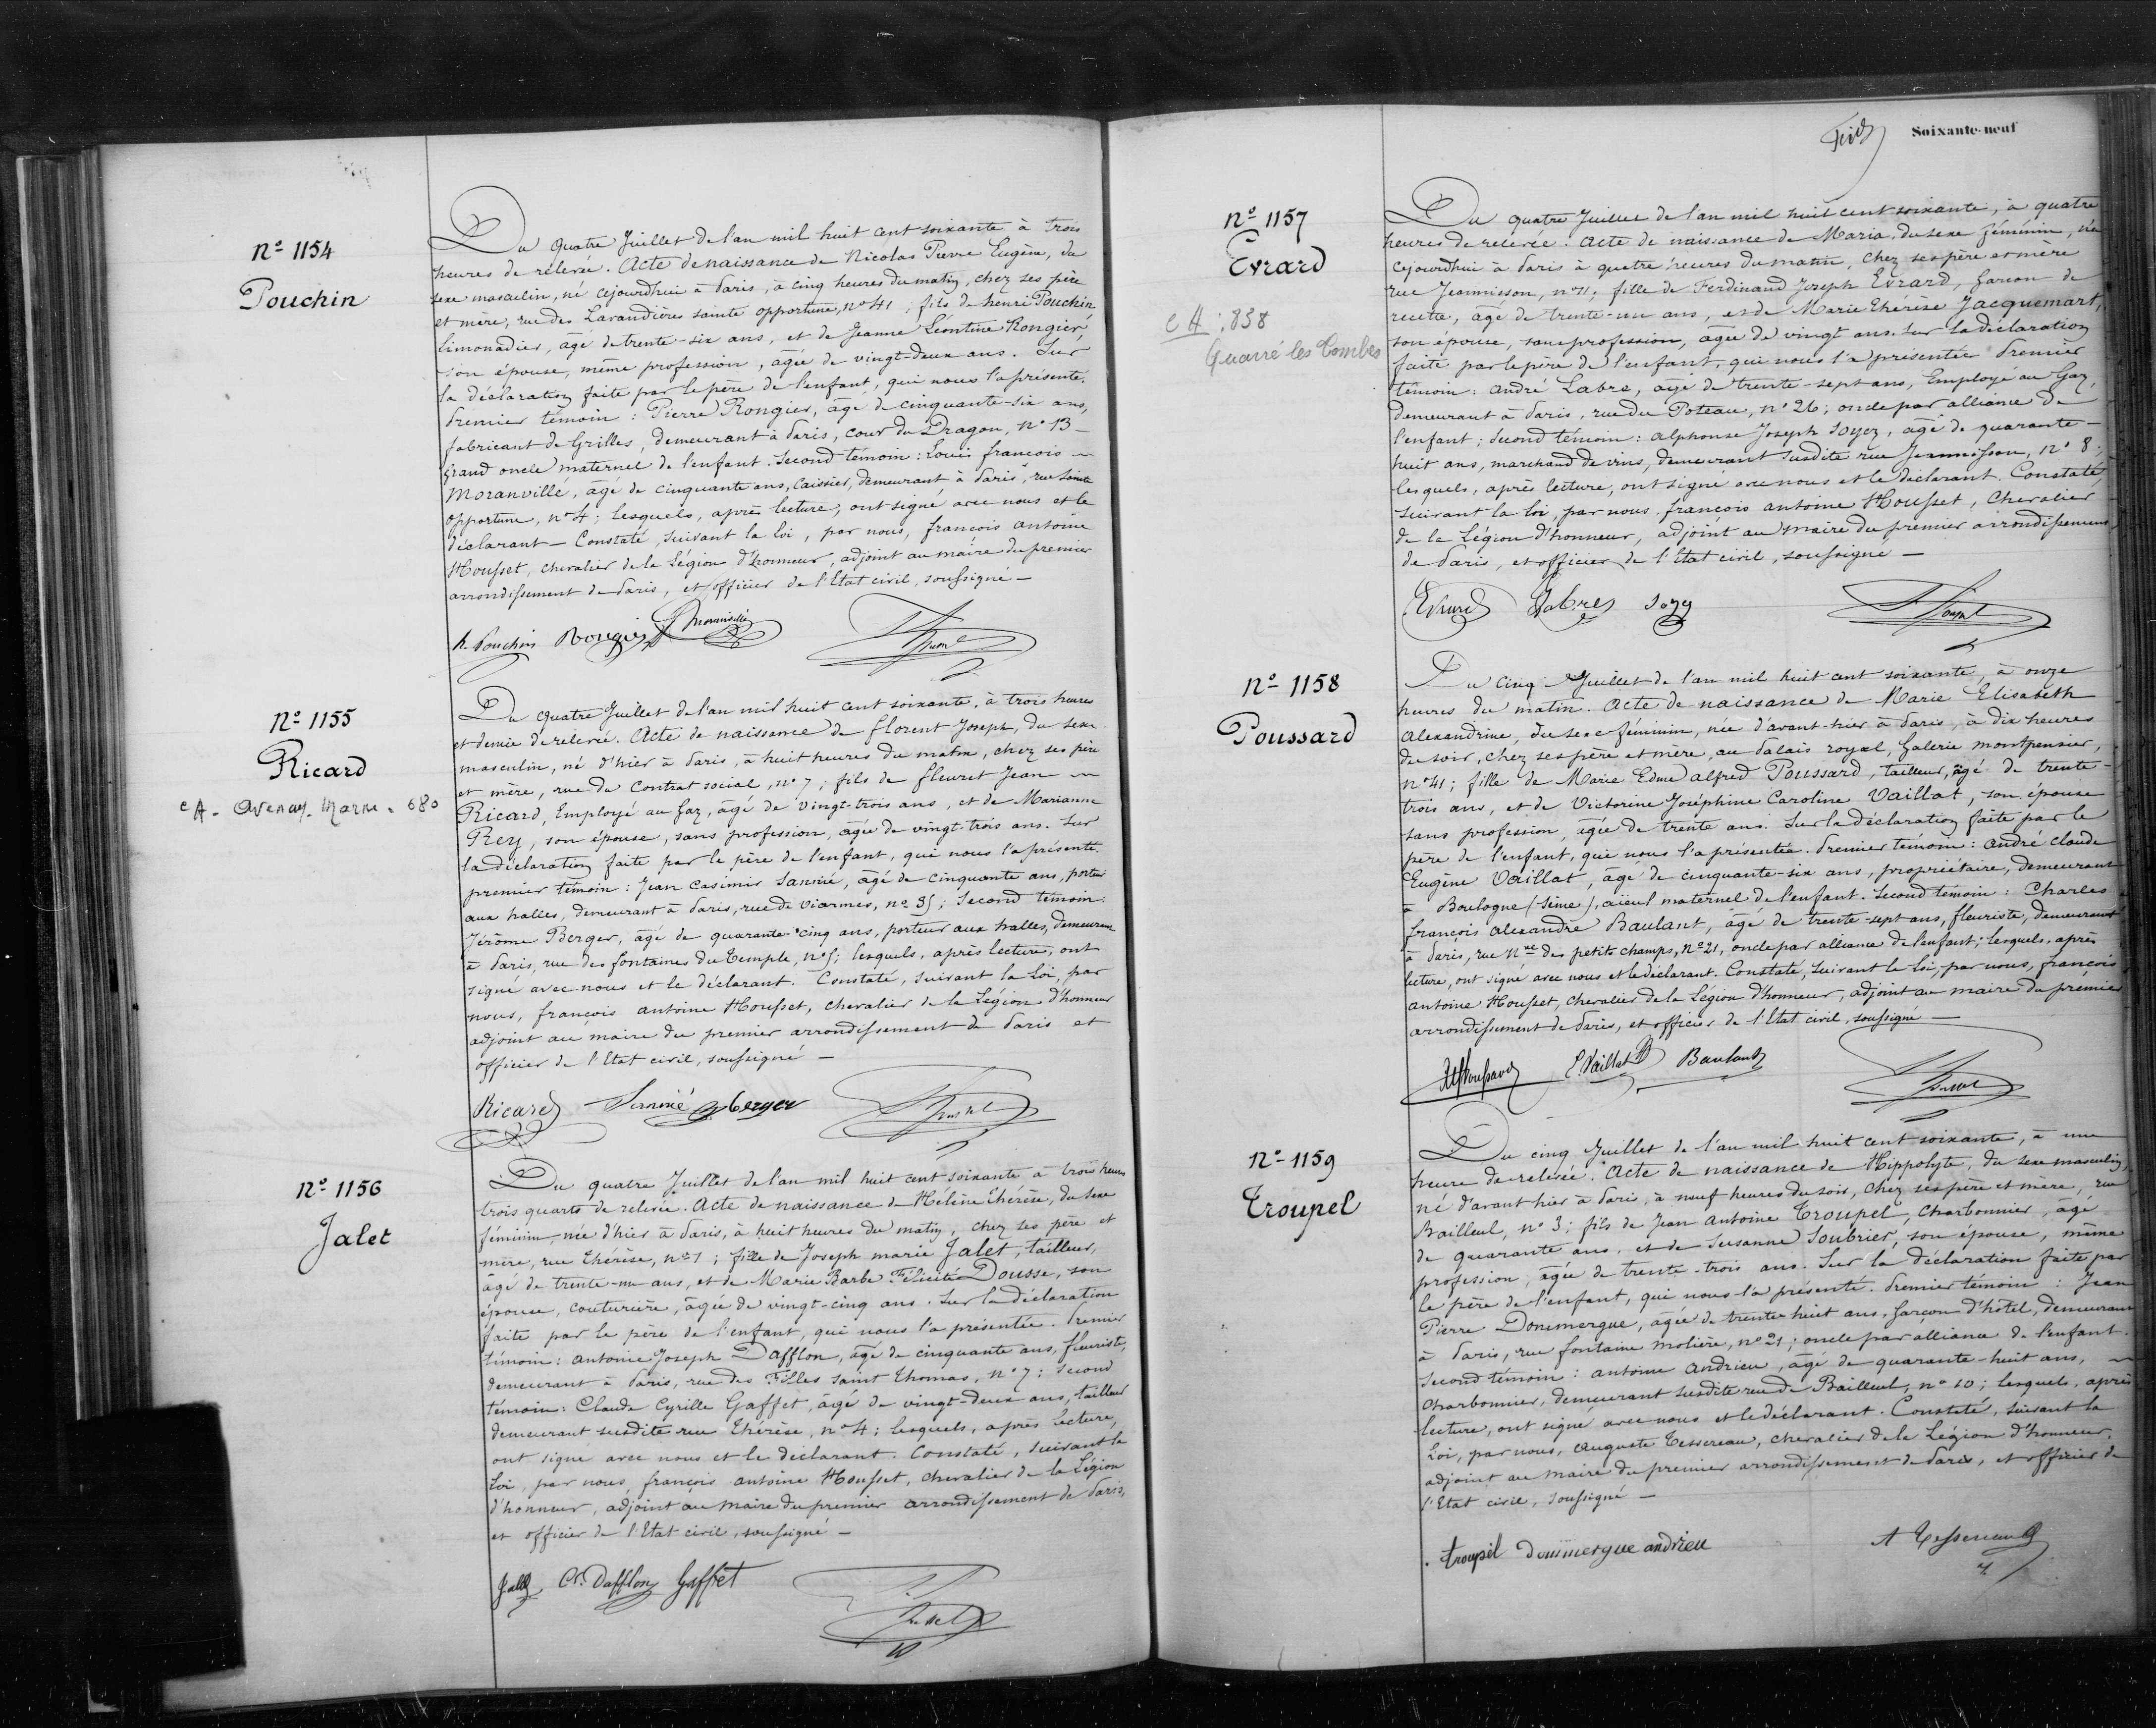 Nº 1154
Pouchin
Du quatre Juillet de l'an mil huit cent soixante à trois
heures de relevée. Acte de naissance de Nicolas Pierre Eugène, du
sexe masculin, né cejourd'hui à Paris, à cinq heures du matin, chez ses père
et mère, rue des Lavandières sainte opportune, nº 41; fils de henri Pouchin,
limonadier, âgé de trente-six ans, et de Jeanne Léontine Rongier,
son épouse, même profession, âgée de vingt-deux ans. Sur
la déclaration faite par le père de l'enfant, qui nous l'a présenté.
Premier témoin: Pierre Rongier, âgé de cinquante-six ans,
fabricant de Grilles, demeurant à Paris, cour du Dragon, nº 13 -
grand oncle maternel de l'enfant. Second témoin: Louis françois
Moranvillé, âgé de cinquante ans, Caissier, demeurant à Paris, rue Sainte
opportune, nº 4; lesquels, après lecture, ont signé avec nous et le
déclarant - Constaté, suivant la loi, par nous, françois antoine
Housset, chevalier de la Légion d'honneur, adjoint au maire du premier
arrondissement de Paris, et officier de l'Etat civil, soussigné -
h. Pouchin Rongier Moranvillé
Nº 1155
Ricard
CA - Avenay. Marne - 680
Du quatre Juillet de l'an mil huit cent soixante, à trois heures
et demie de relevée. Acte de naissance de florent Joseph, du sexe
masculin, né d'hier à Paris, à huit heures du matin, chez ses père
et mère, rue du Contrat social, nº 7; fils de fleuret Jean
Ricard, Employé au Gaz, âgé de vingt-trois ans, et de Marianne
Rey, son épouse, sans profession, âgée de vingt-trois ans. Sur
la déclaration faite par le père de l'enfant, qui nous l'a présenté.
premier témoin: Jean Casimir Sannié, âgé de cinquante ans, porteur
aux halles, demeurant à Paris, rue de Viarmes, nº 35; Second témoin:
Jérôme Berger, âgé de quarante-cinq ans, porteur aux halles, demeurant
à Paris, rue des fontaines du Temple, nº 5; lesquels, après lecture, ont
signé avec nous et le déclarant. Constaté, suivant la Loi, par
nous, françois antoine Housset, chevalier de la Légion d'honneur
adjoint au maire du premier arrondissement de Paris et
officier de l'Etat civil, soussigné -
Ricard Sannié berger
Nº 1156
Jalet
Du quatre Juillet de l'an mil huit cent soixante, à trois heures
trois quarts de relevée. Acte de naissance de Hélène Thérèse, du sexe
féminin, née d'hier à Paris, à huit heures du matin, chez ses père et
mère, rue Thérèse, nº 1; fille de Joseph marie Jalet, tailleur,
âgé de trente-un ans, et de Marie Barbe Félicité Dousse, son
épouse, couturière, âgée de vingt-cinq ans. Sur la déclaration
faite par le père de l'enfant, qui nous l'a présentée. Premier
témoin: antoine Joseph Dafflon, âgé de cinquante ans, fleuriste,
demeurant à Paris, rue des Filles saint Thomas, nº 7; Second
témoin: Claude Cyrille Gaffet, âgé de vingt-deux ans, tailleur
demeurant susdite rue Thérèse, nº 4; lesquels, après lecture,
ont signé avec nous et le déclarant. Constaté, suivant la
Loi, par nous, françois antoine Housset, chevalier de la Légion
d'honneur, adjoint au maire du premier arrondissement de Paris,
et officier de l'Etat civil, soussigné -
Jalet Dafflon Gaffet
Soixante-neuf
Nº 1157
Evrard
CA : 838
Quarré les Tombes
Du quatre Juillet de l'an mil huit cent soixante, à quatre
heures de relevée. Acte de naissance de Maria, du sexe féminin, née
cejourd'hui à Paris à quatre heures du matin, chez ses père et mère
rue Jeannisson, nº 11; fille de Ferdinand Joseph Evrard, garçon de
recette, âgé de trente-un ans, et de Marie Thérèse Jacquemart,
son épouse, sans profession, âgée de vingt ans. Sur la déclaration
faite par le père de l'enfant, qui nous l'a présentée Premier
témoin: André Labre, âgé de trente-sept ans, Employé au Gaz,
demeurant à Paris, rue du Poteau, nº 26; oncle par alliance de
l'enfant; Second témoin: alphonse Joseph Soyez, âgé de quarante-
huit ans, marchand de vins, demeurant susdite rue Jeannisson, nº 8;
lesquels, après lecture, ont signé avec nous et le déclarant. Constaté,
suivant la loi, par nous, françois antoine Housset, Chevalier
de la Légion d'honneur, adjoint au maire du premier arrondissement
de Paris, et officier de l'Etat civil, soussigné -
Evrard Labre Soyez
Nº 1158
Poussard
Du cinq Juillet de l'an mil huit cent soixante, à onze
heures du matin. Acte de naissance de Marie Elisabeth
Alexandrine, du sexe féminin, née d'avant-hier à Paris, à dix heures
du soir, chez ses père et mère, au Palais royal, Galerie montpensier,
nº 41; fille de Marie Edme alfred Poussard, tailleur, âgé de trente-
trois ans, et de Victorine Joséphine Caroline Vaillat, son épouse
sans profession, âgée de trente ans. Sur la déclaration faite par le
père de l'enfant, qui nous l'a présentée. Premier témoin: André Claude
Eugène Vaillat, âgé de cinquante-six ans, propriétaire, demeurant
à Boulogne (Seine), aïeul maternel de l'enfant. Second témoin: Charles
françois alexandre Baulant, âgé de trente-sept ans, fleuriste, demeurant
à Paris, rue Nve des petits champs, nº 21, oncle par alliance de l'enfant; lesquels, après
lecture, ont signé avec nous et le déclarant. Constaté, suivant la Loi, par nous, françois
antoine Housset, chevalier de la Légion d'honneur, adjoint au maire du premier
arrondissement de Paris, et officier de l'Etat civil, soussigné -
Poussard E. Vaillat Baulant
Nº 1159
Troupel
Du cinq Juillet de l'an mil huit cent soixante, à une
heure de relevée. Acte de naissance de Hippolyte, du sexe masculin,
né d'avant hier à Paris, à neuf heures du soir, chez ses père et mère, rue
Bailleul, nº 3; fils de Jean Antoine Troupel, charbonnier, âgé
de quarante ans, et de Susanne Soubrier, son épouse, même
profession, âgée de trente-trois ans. Sur la déclaration faite par
le père de l'enfant, qui nous l'a présenté. Premier témoin: Jean
Pierre Doumergue, âgée de trente huit ans, garçon d'hôtel, demeurant
à Paris, rue fontaine molière, nº 21; oncle par alliance de l'enfant.
Second témoin: antoine andrieu, âgé de quarante-huit ans,
charbonnier, demeurant susdite rue de Bailleul, nº 10; lesquels, après
lecture, ont signé avec nous et le déclarant. Constaté, suivant la
Loi, par nous, Auguste Tessereau, chevalier de la Légion d'honneur,
adjoint au maire du premier arrondissement de Paris, et officier de
l'Etat civil, soussigné -
troupel doumergue andrieu A Tessereau